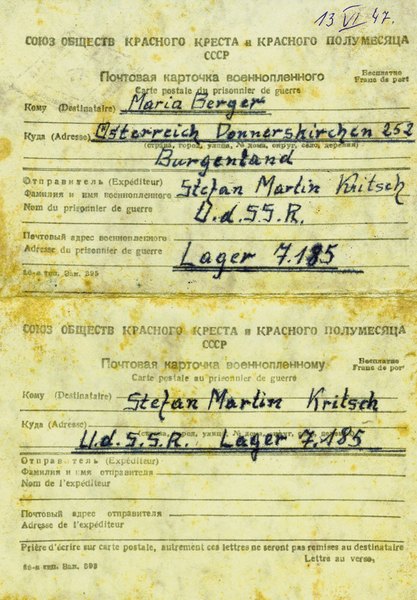 13 VI 47.
СОЮЗ ОБЩЕСТВ КРАСНОГО КРЕСТА и КРАСНОГО ПОЛУМЕСЯЦА
СССР
Почтовая карточка военнопленного
Carte postale du prisonnier de guerre
Бесплатно
Franc de port
Кому (Destinataire) Maria Berger
Куда (Adresse) Österreich Donnerskirchen 252
(страна, город, улица, № дома, округ, село, деревня)
Burgenland
Отправитель (Expéditeur)
Фамилия и имя военнопленного Stefan Martin Kritsch
Nom du prisonnier de guerre U.d.S.S.R.
Почтовый адрес военнопленного
Adresse du prisonnier de guerre Lager 7.185
16-я тип. Зак. 593
СОЮЗ ОБЩЕСТВ КРАСНОГО КРЕСТА и КРАСНОГО ПОЛУМЕСЯЦА
СССР
Почтовая карточка военнопленному
Carte postale au prisonnier de guerre
Бесплатно
Franc de port
Кому (Destinataire) Stefan Martin Kritsch
Куда (Adresse) U.d.S.S.R. Lager 7.185
Отправитель (Expéditeur)
Фамилия и имя отправителя
Nom de l'expéditeur
Почтовый адрес отправителя
Adresse de l'expéditeur
Prière d'écrire sur carte postale, autrement ces lettres ne seront pas remises au destinataire
Lettre au verso.
16-я тип. Зак. 593